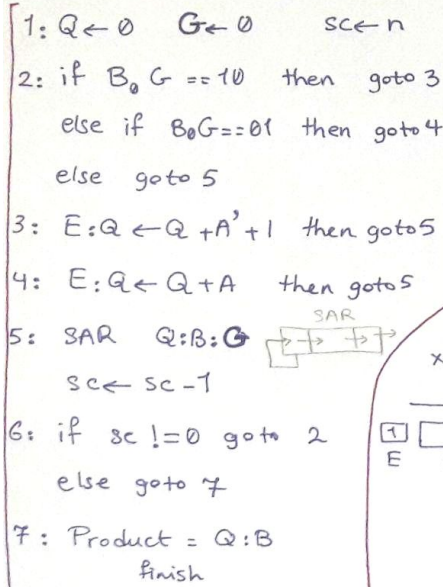 1: Q ← 0 G ← 0 sc ← n
2: if B₀ G == 10 then goto 3
else if B₀G == 01 then goto 4
else goto 5
3: E:Q ← Q + A' + 1 then goto 5
4: E:Q ← Q + A then goto 5
SAR
5: SAR Q:B:G
sc ← sc - 1
x
6: if sc != 0 goto 2
1
E
else goto 7
7: Product = Q:B
finish